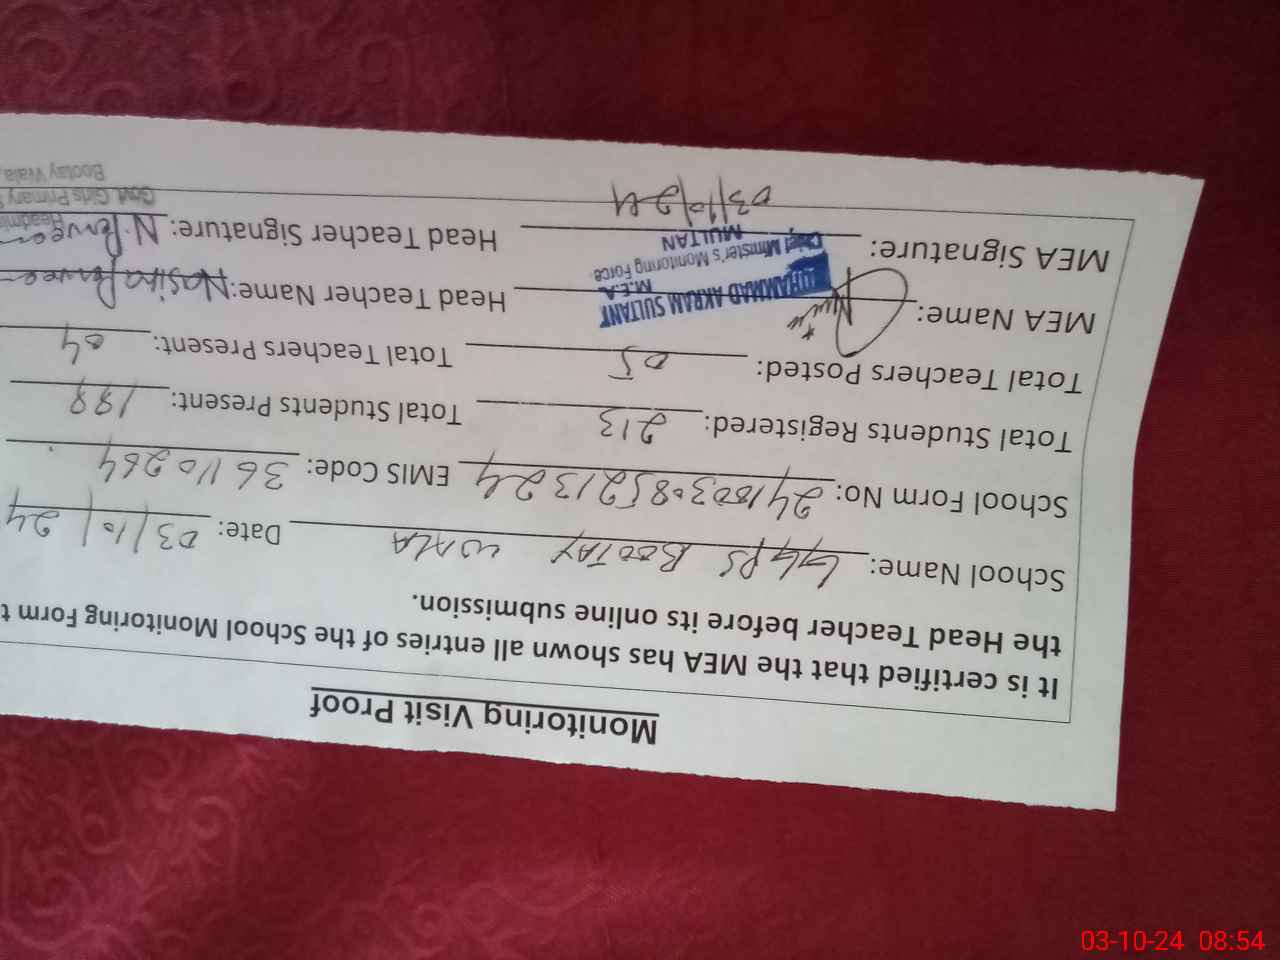 Monitoring Visit Proof
It is certified that the MEA has shown all entries of the School Monitoring Form t
the Head Teacher before its online submission.
School Name: GGPS BOOTAY WALA Date: 03/10/24
School Form No: EMIS Code: 36110264
Total Students Registered: 213 Total Students Present: 188
Total Teachers Posted: 05 Total Teachers Present: 04
MEA Name: MUHAMMAD AKRAM SULTANI Head Teacher Name: Nasira Parveen
M.E.A
Chief Minister's Monitoring Force
MULTAN
MEA Signature: Head Teacher Signature: N. Parveen
03/10/24
Govt. Girls Primary
Bootay Wala,
03-10-24 08:54